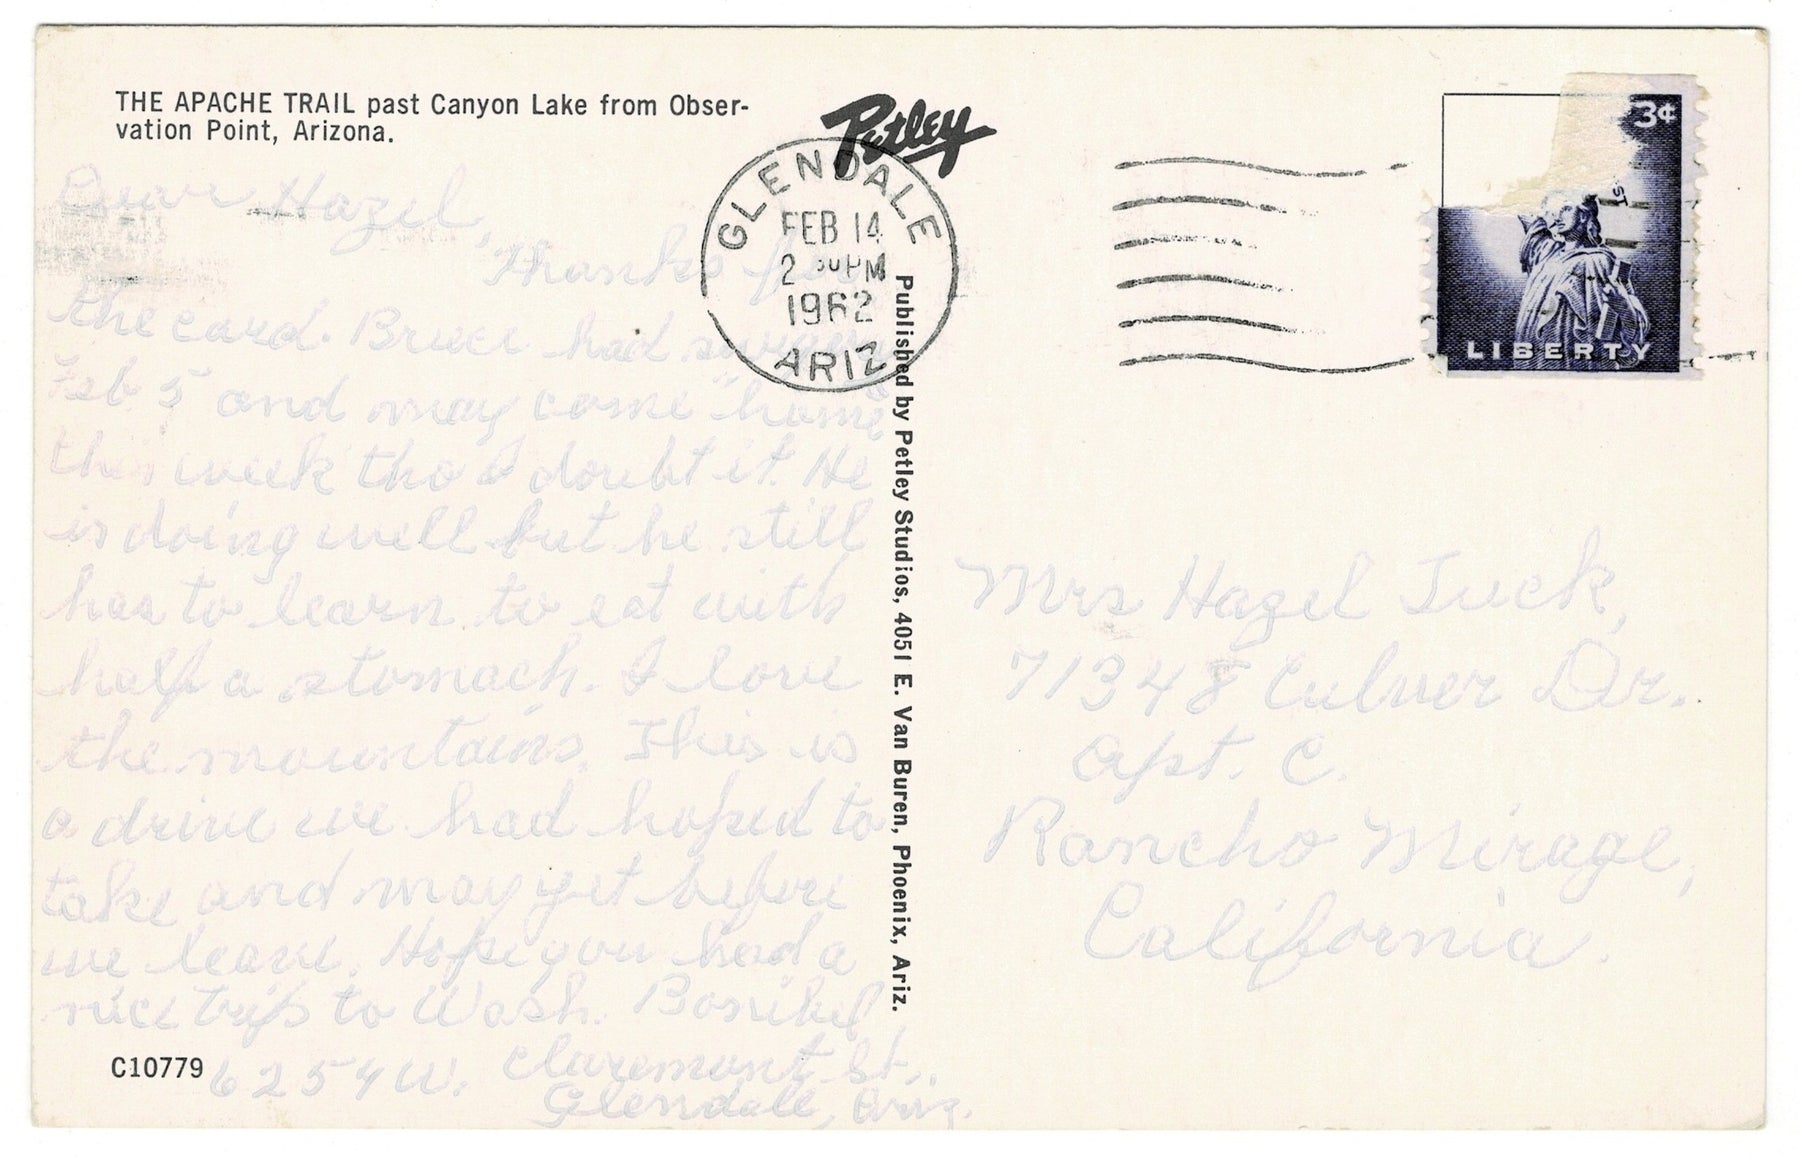 THE APACHE TRAIL past Canyon Lake from Obser-
vation Point, Arizona.
Petley
GLENDALE
FEB 14
2 30 PM
1962
ARIZ
3¢
ST
LIBERTY
Dear Hazel,
Thanks for
the card. Bruce had surgery
Feb 5 and may come "home"
this week tho I doubt it. He
is doing well but he still
has to learn to eat with
half a stomach. I love
the mountains. This is
a drive we had hoped to
take and may yet before
we leave. Hope you had a
nice trip to Wash.
6254 W. Claremont St.,
Glendale, Ariz.
C10779
Published by Petley Studios, 4051 E. Van Buren, Phoenix, Ariz.
Mrs Hazel Tuck,
71348 Culver Dr.
Apt. C.
Rancho Mirage,
California.